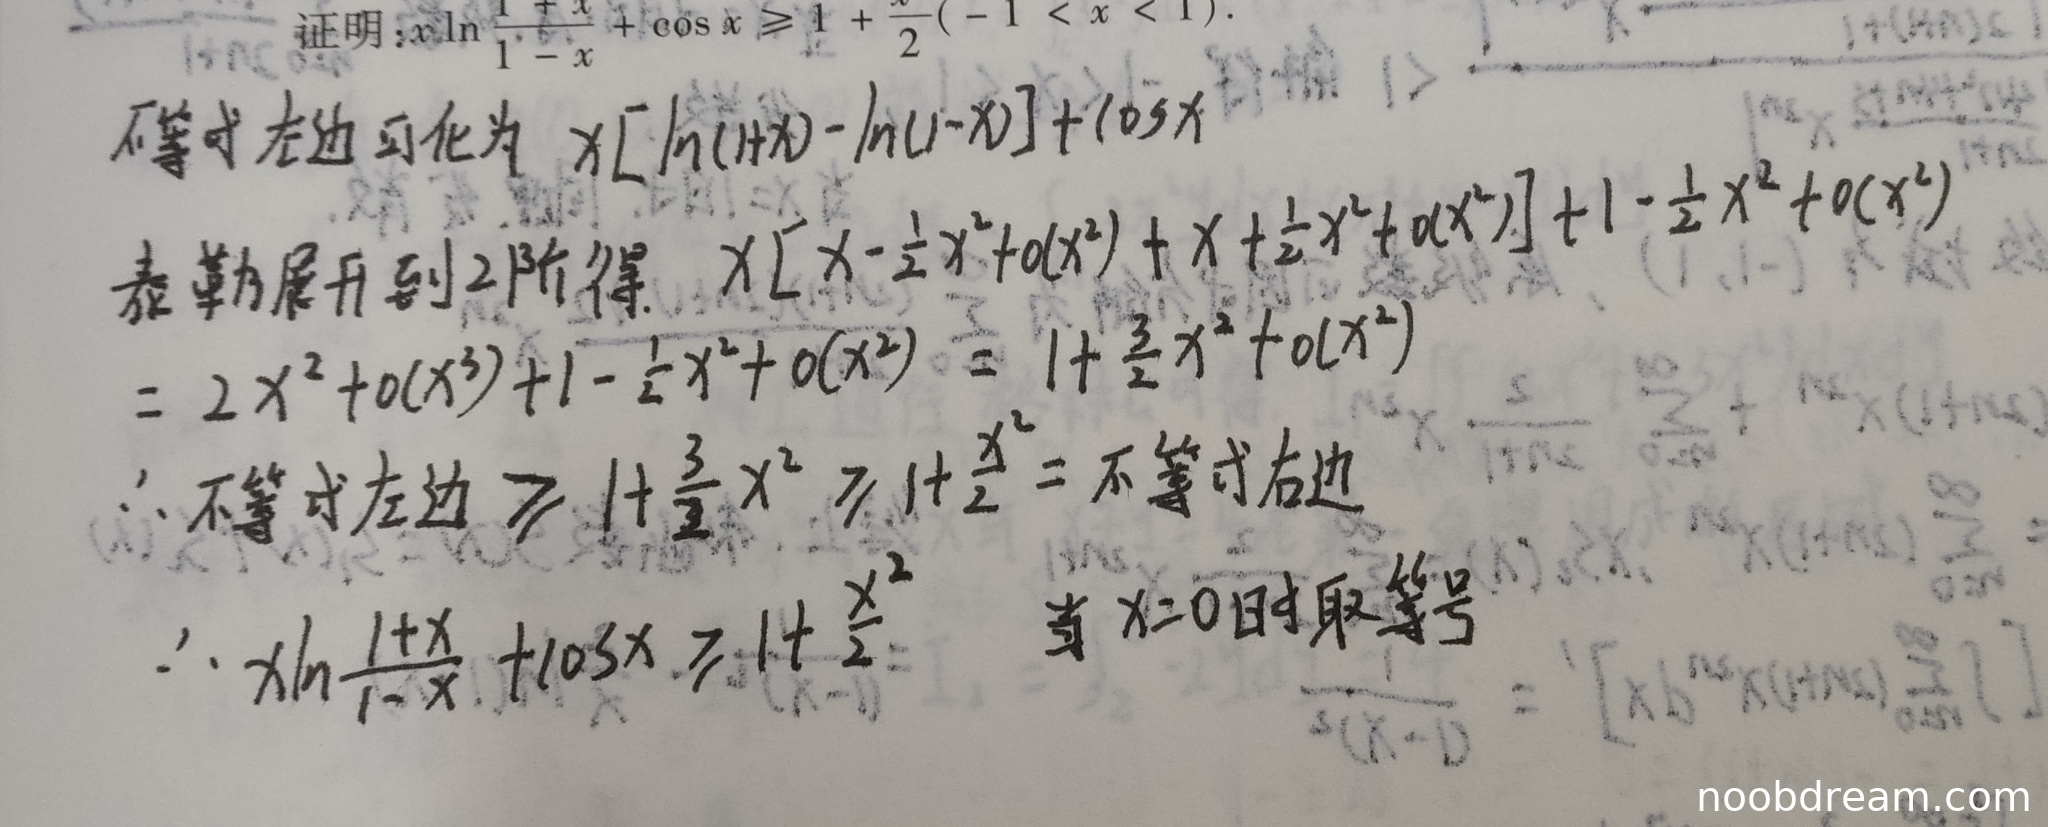 证明:x ln (1+x)/(1-x) + cos x ≥ 1 + x²/2 (-1 < x < 1).
不等式左边可化为 x[ln(1+x)-ln(1-x)]+cosx
泰勒展开到2阶得. x[x-½x²+o(x²)+x+½x²+o(x²)]+1-½x²+o(x²)
= 2x²+o(x³)+1-½x²+o(x²) = 1+3/2x²+o(x²)
∴不等式左边 ≥ 1+3/2x² ≥ 1+x²/2 = 不等式右边
∴ xln(1+x)/(1-x) +cosx ≥ 1+x²/2 当x=0时取等号
noobdream.com